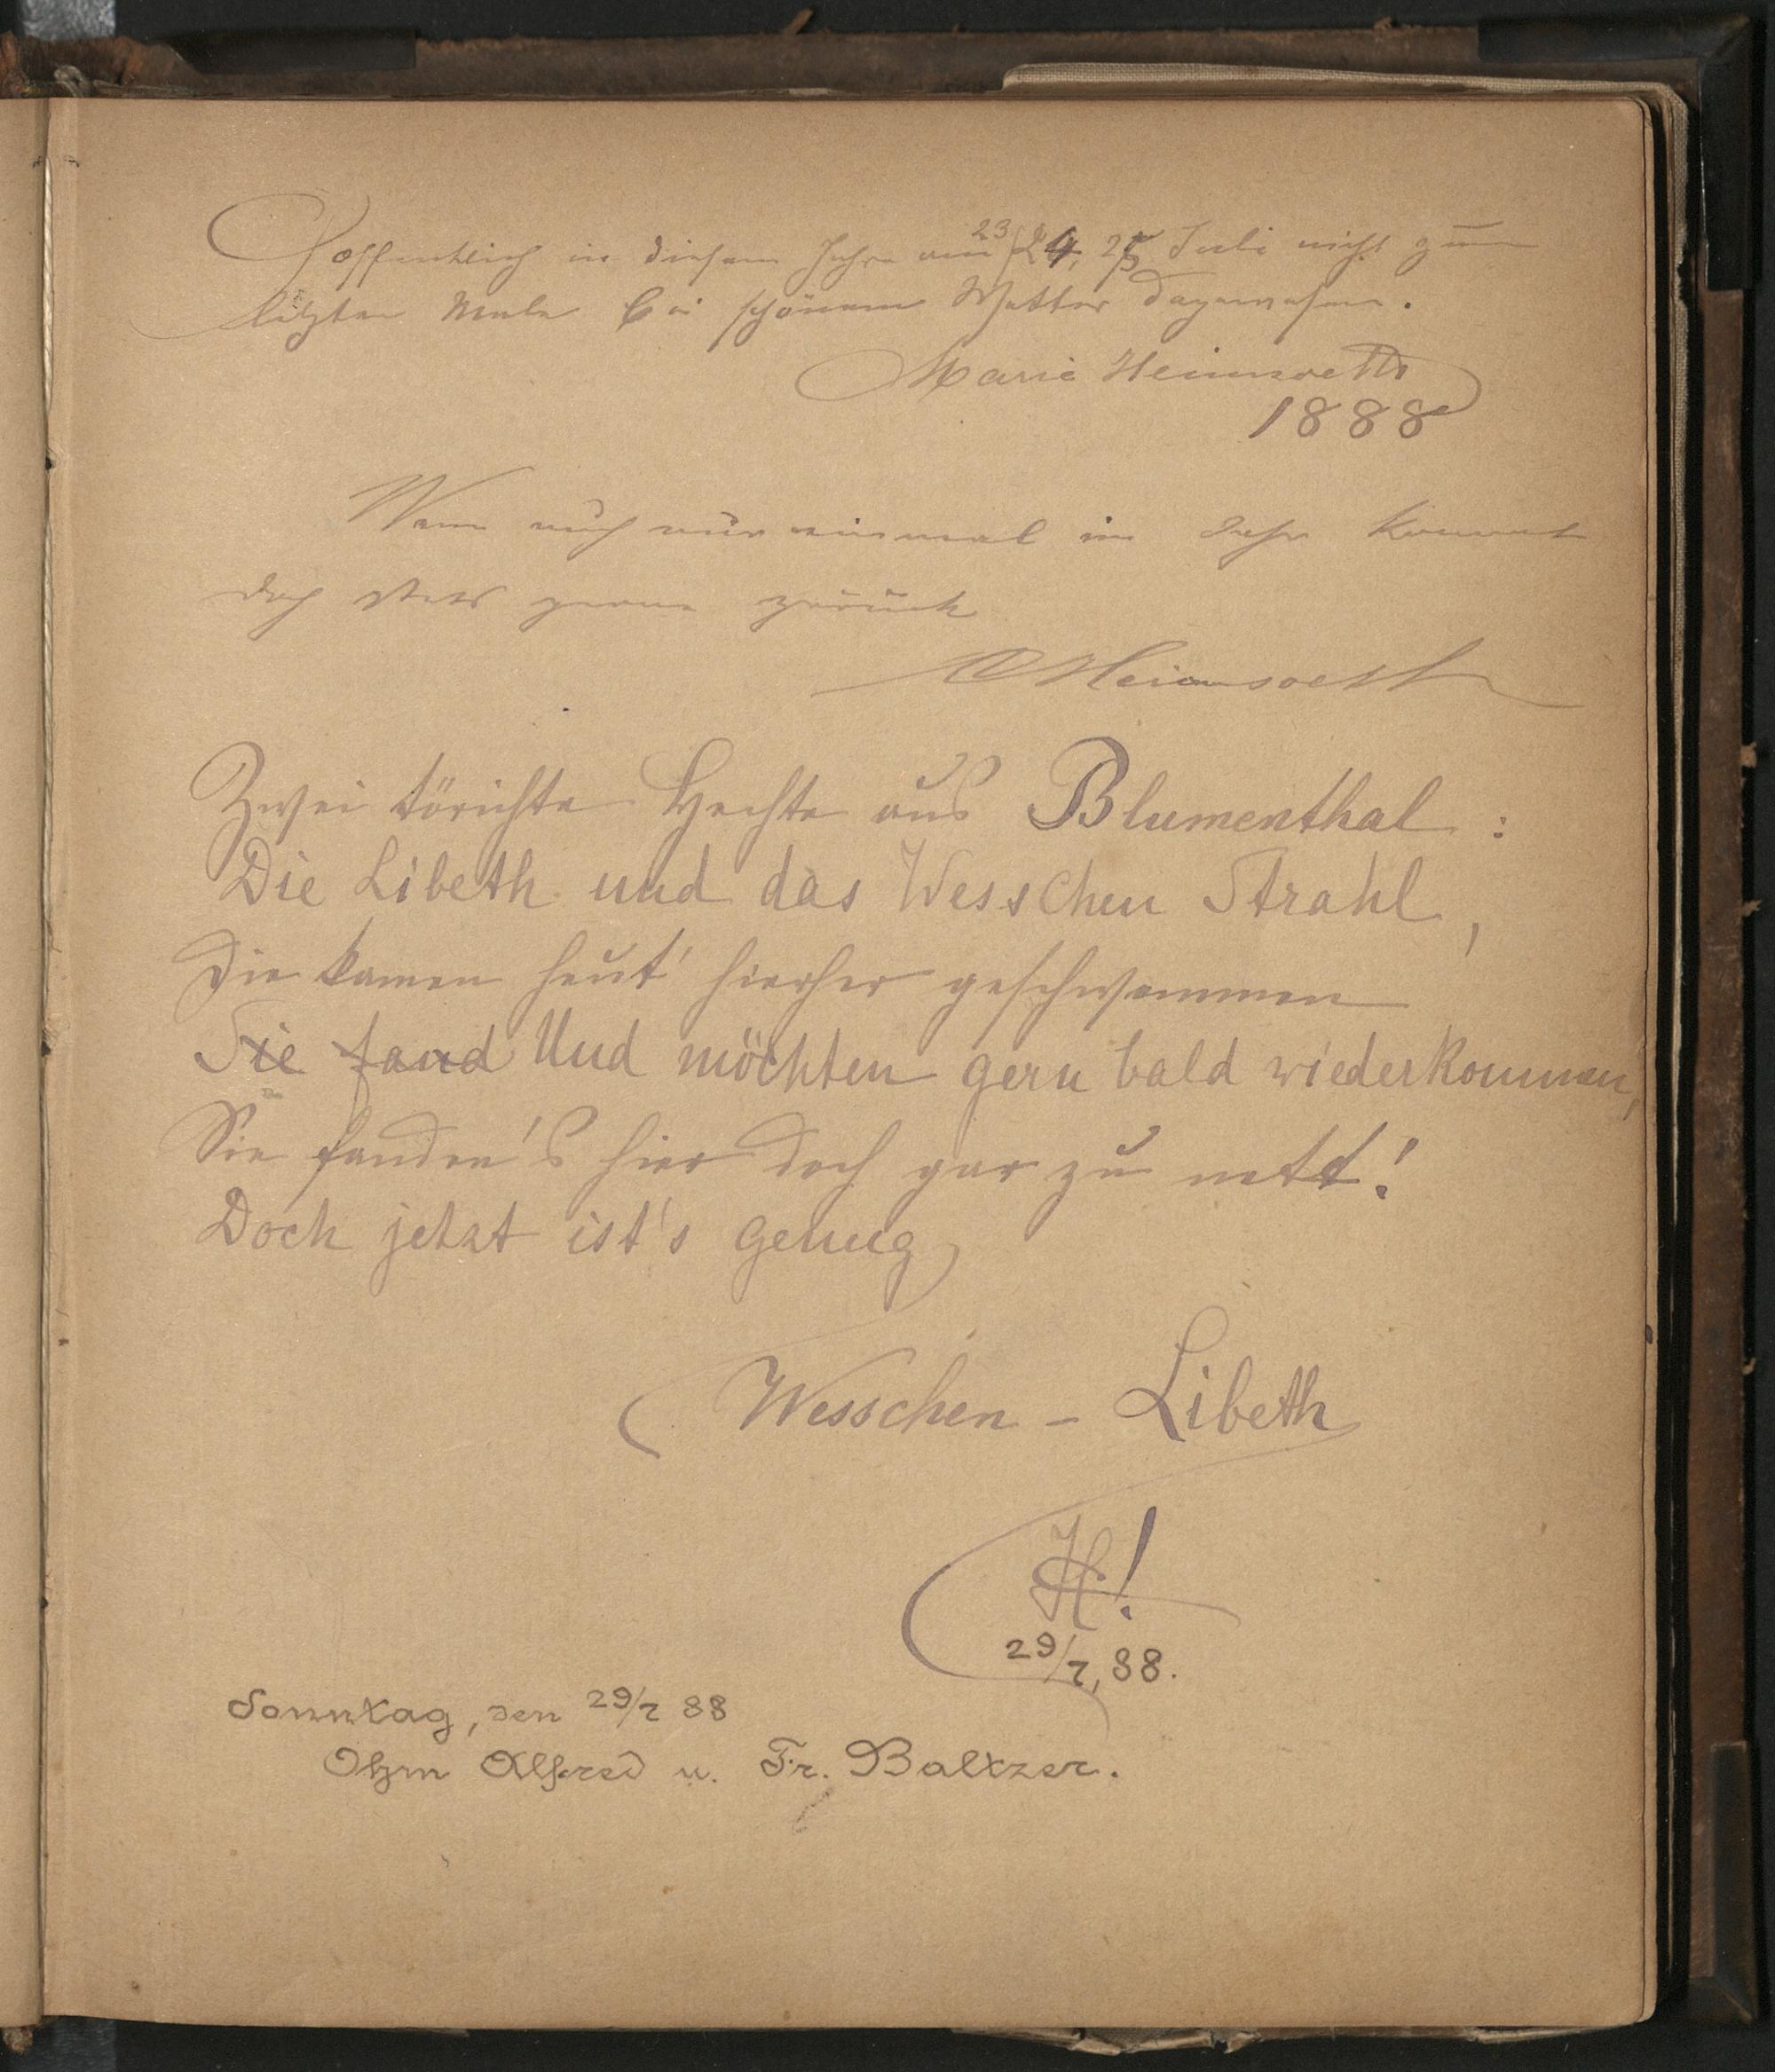 Hoffentlich in diesem Jahre am 23 24, 25 Juli nicht zum
letzten Male bei schönem Wetter dagewesen.
Marie Heimsoeth
1888
Wenn auch nur einmal im Jahr kommt
doch stets gerne zurück
Heimsoeth
Zwei törichte Hechte aus Blumenthal :
Die Libeth und das Wesschen Strahl,
Die kamen heut' hierher geschwommen
Sie fand Und möchten gern bald wiederkommen,
Sie fanden's hier doch gar zu nett!
Doch jetzt ist's genug
Wesschen - Libeth
H!
29/7, 88.
Sonntag, den 29/7 88
Ohm Alfred u. Fr. Baltzer.